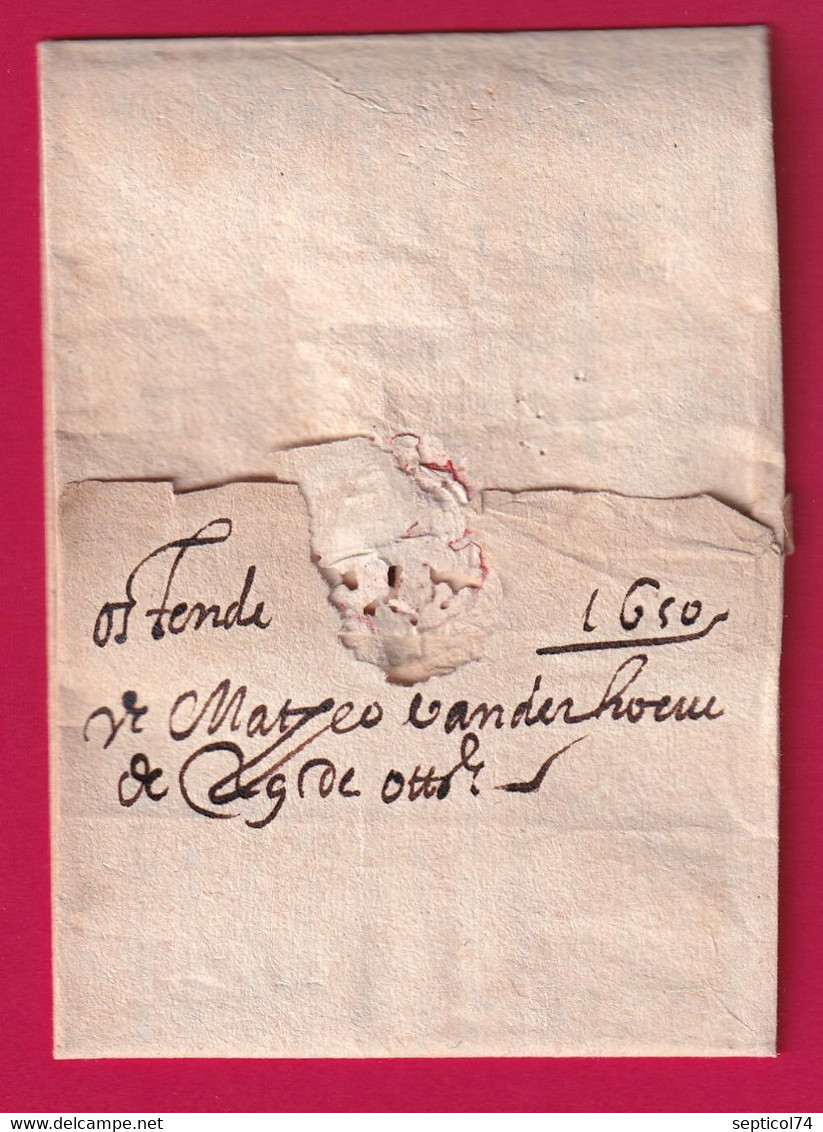 ostende 1650
de Matheo Vanderhoeue
de 29 de ottre
www.delcampe.net
septicol74